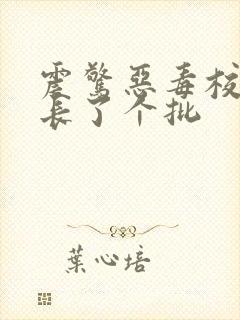 震驚惡毒校
長了个批
葉心培